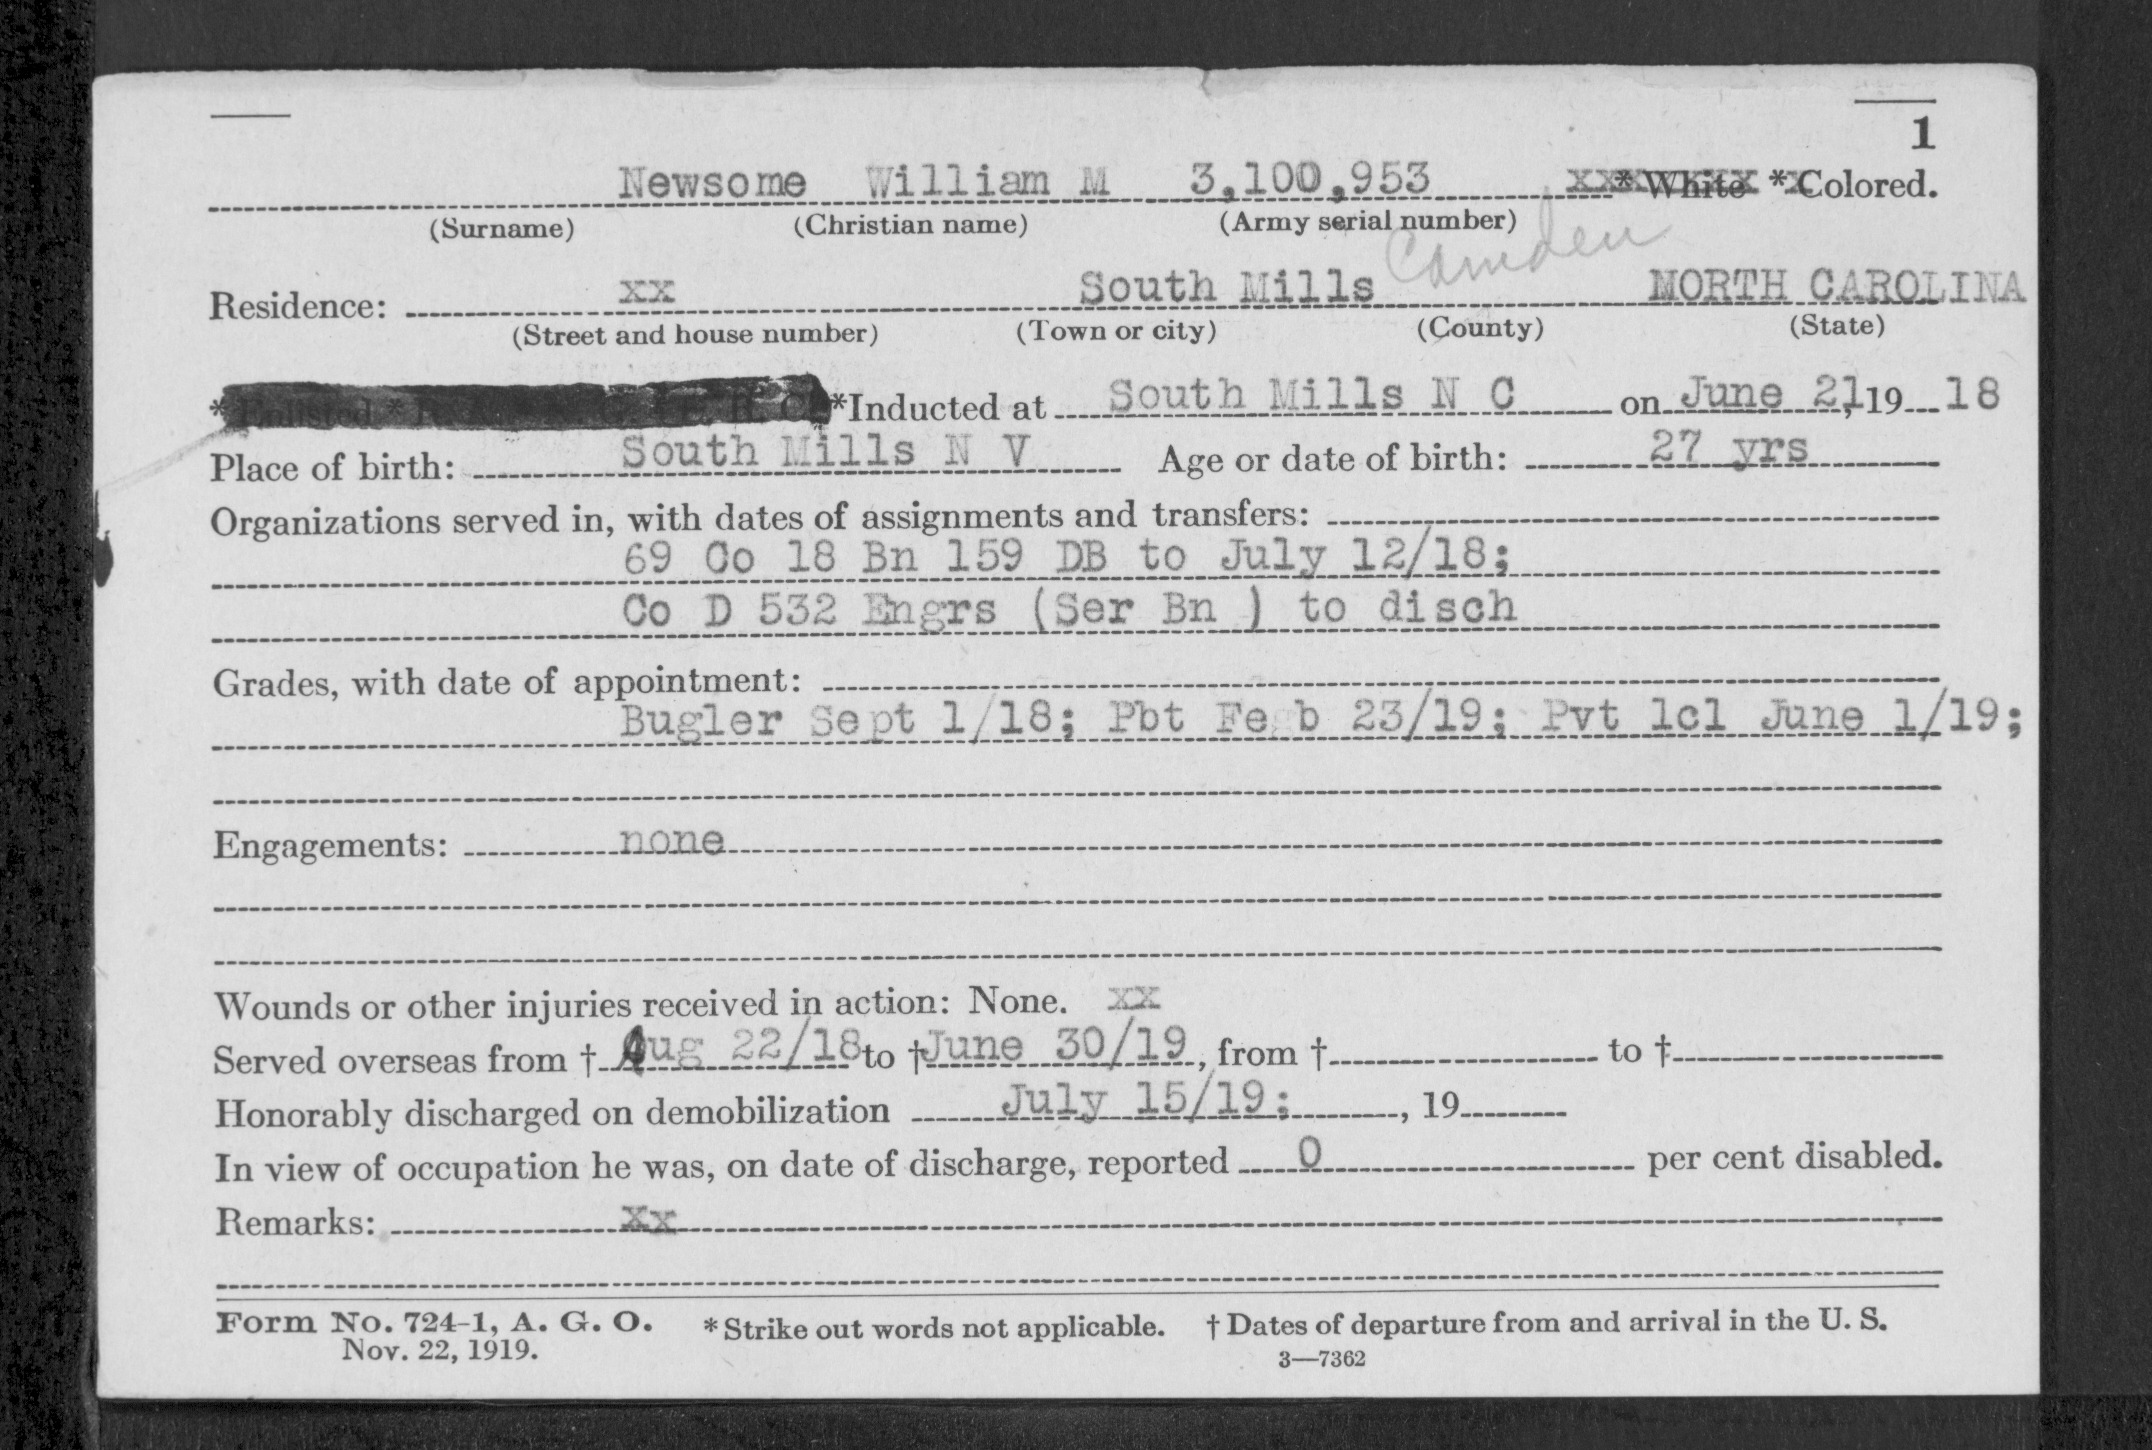 1
Newsome William M 3,100,953 * White * Colored.
(Surname) (Christian name) (Army serial number)
Camden
Residence: xx South Mills MORTH CAROLINA
(Street and house number) (Town or city) (County) (State)
* Enlisted * *Inducted at South Mills N C on June 21, 19 18
Place of birth: South Mills N V Age or date of birth: 27 yrs
Organizations served in, with dates of assignments and transfers:
69 Co 18 Bn 159 DB to July 12/18;
Co D 532 Engrs (Ser Bn ) to disch
Grades, with date of appointment:
Bugler Sept 1/18; Pbt Fe b 23/19; Pvt 1cl June 1/19;
Engagements: none
Wounds or other injuries received in action: None. xx
Served overseas from † Aug 22/18 to † June 30/19, from † to †
Honorably discharged on demobilization July 15/19; , 19
In view of occupation he was, on date of discharge, reported 0 per cent disabled.
Remarks: Xx
Form No. 724-1, A. G. O. * Strike out words not applicable. † Dates of departure from and arrival in the U. S.
Nov. 22, 1919. 3—7362